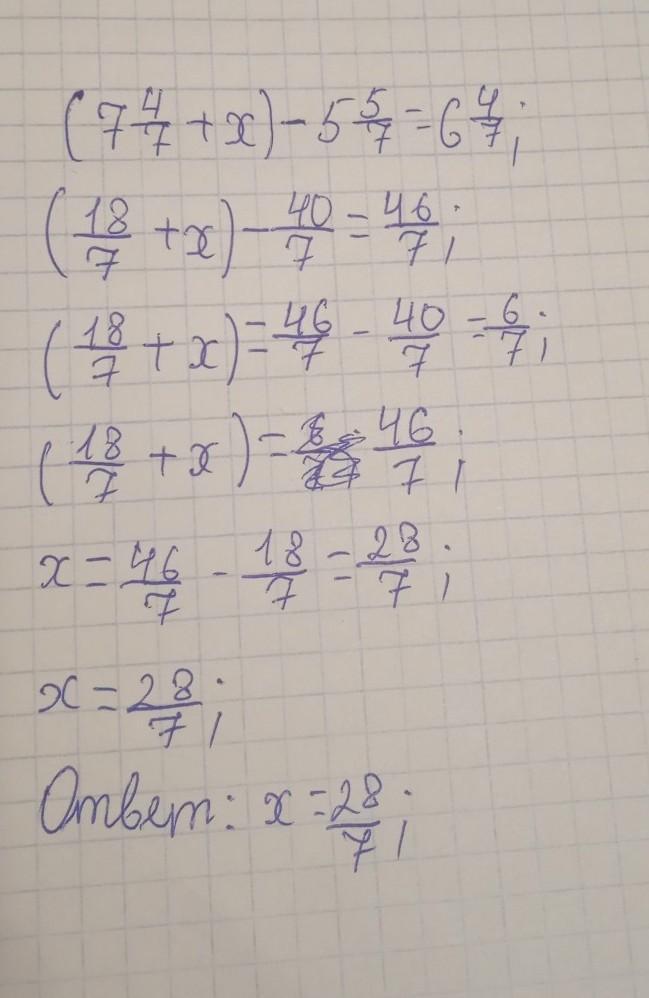 (7 4/7 + x) - 5 5/7 = 6 4/7;
(18/7 + x) - 40/7 = 46/7;
(18/7 + x) = 46/7 - 40/7 = 6/7;
(18/7 + x) = 46/7;
x = 46/7 - 18/7 = 28/7;
x = 28/7;
Ответ: x = 28/7;